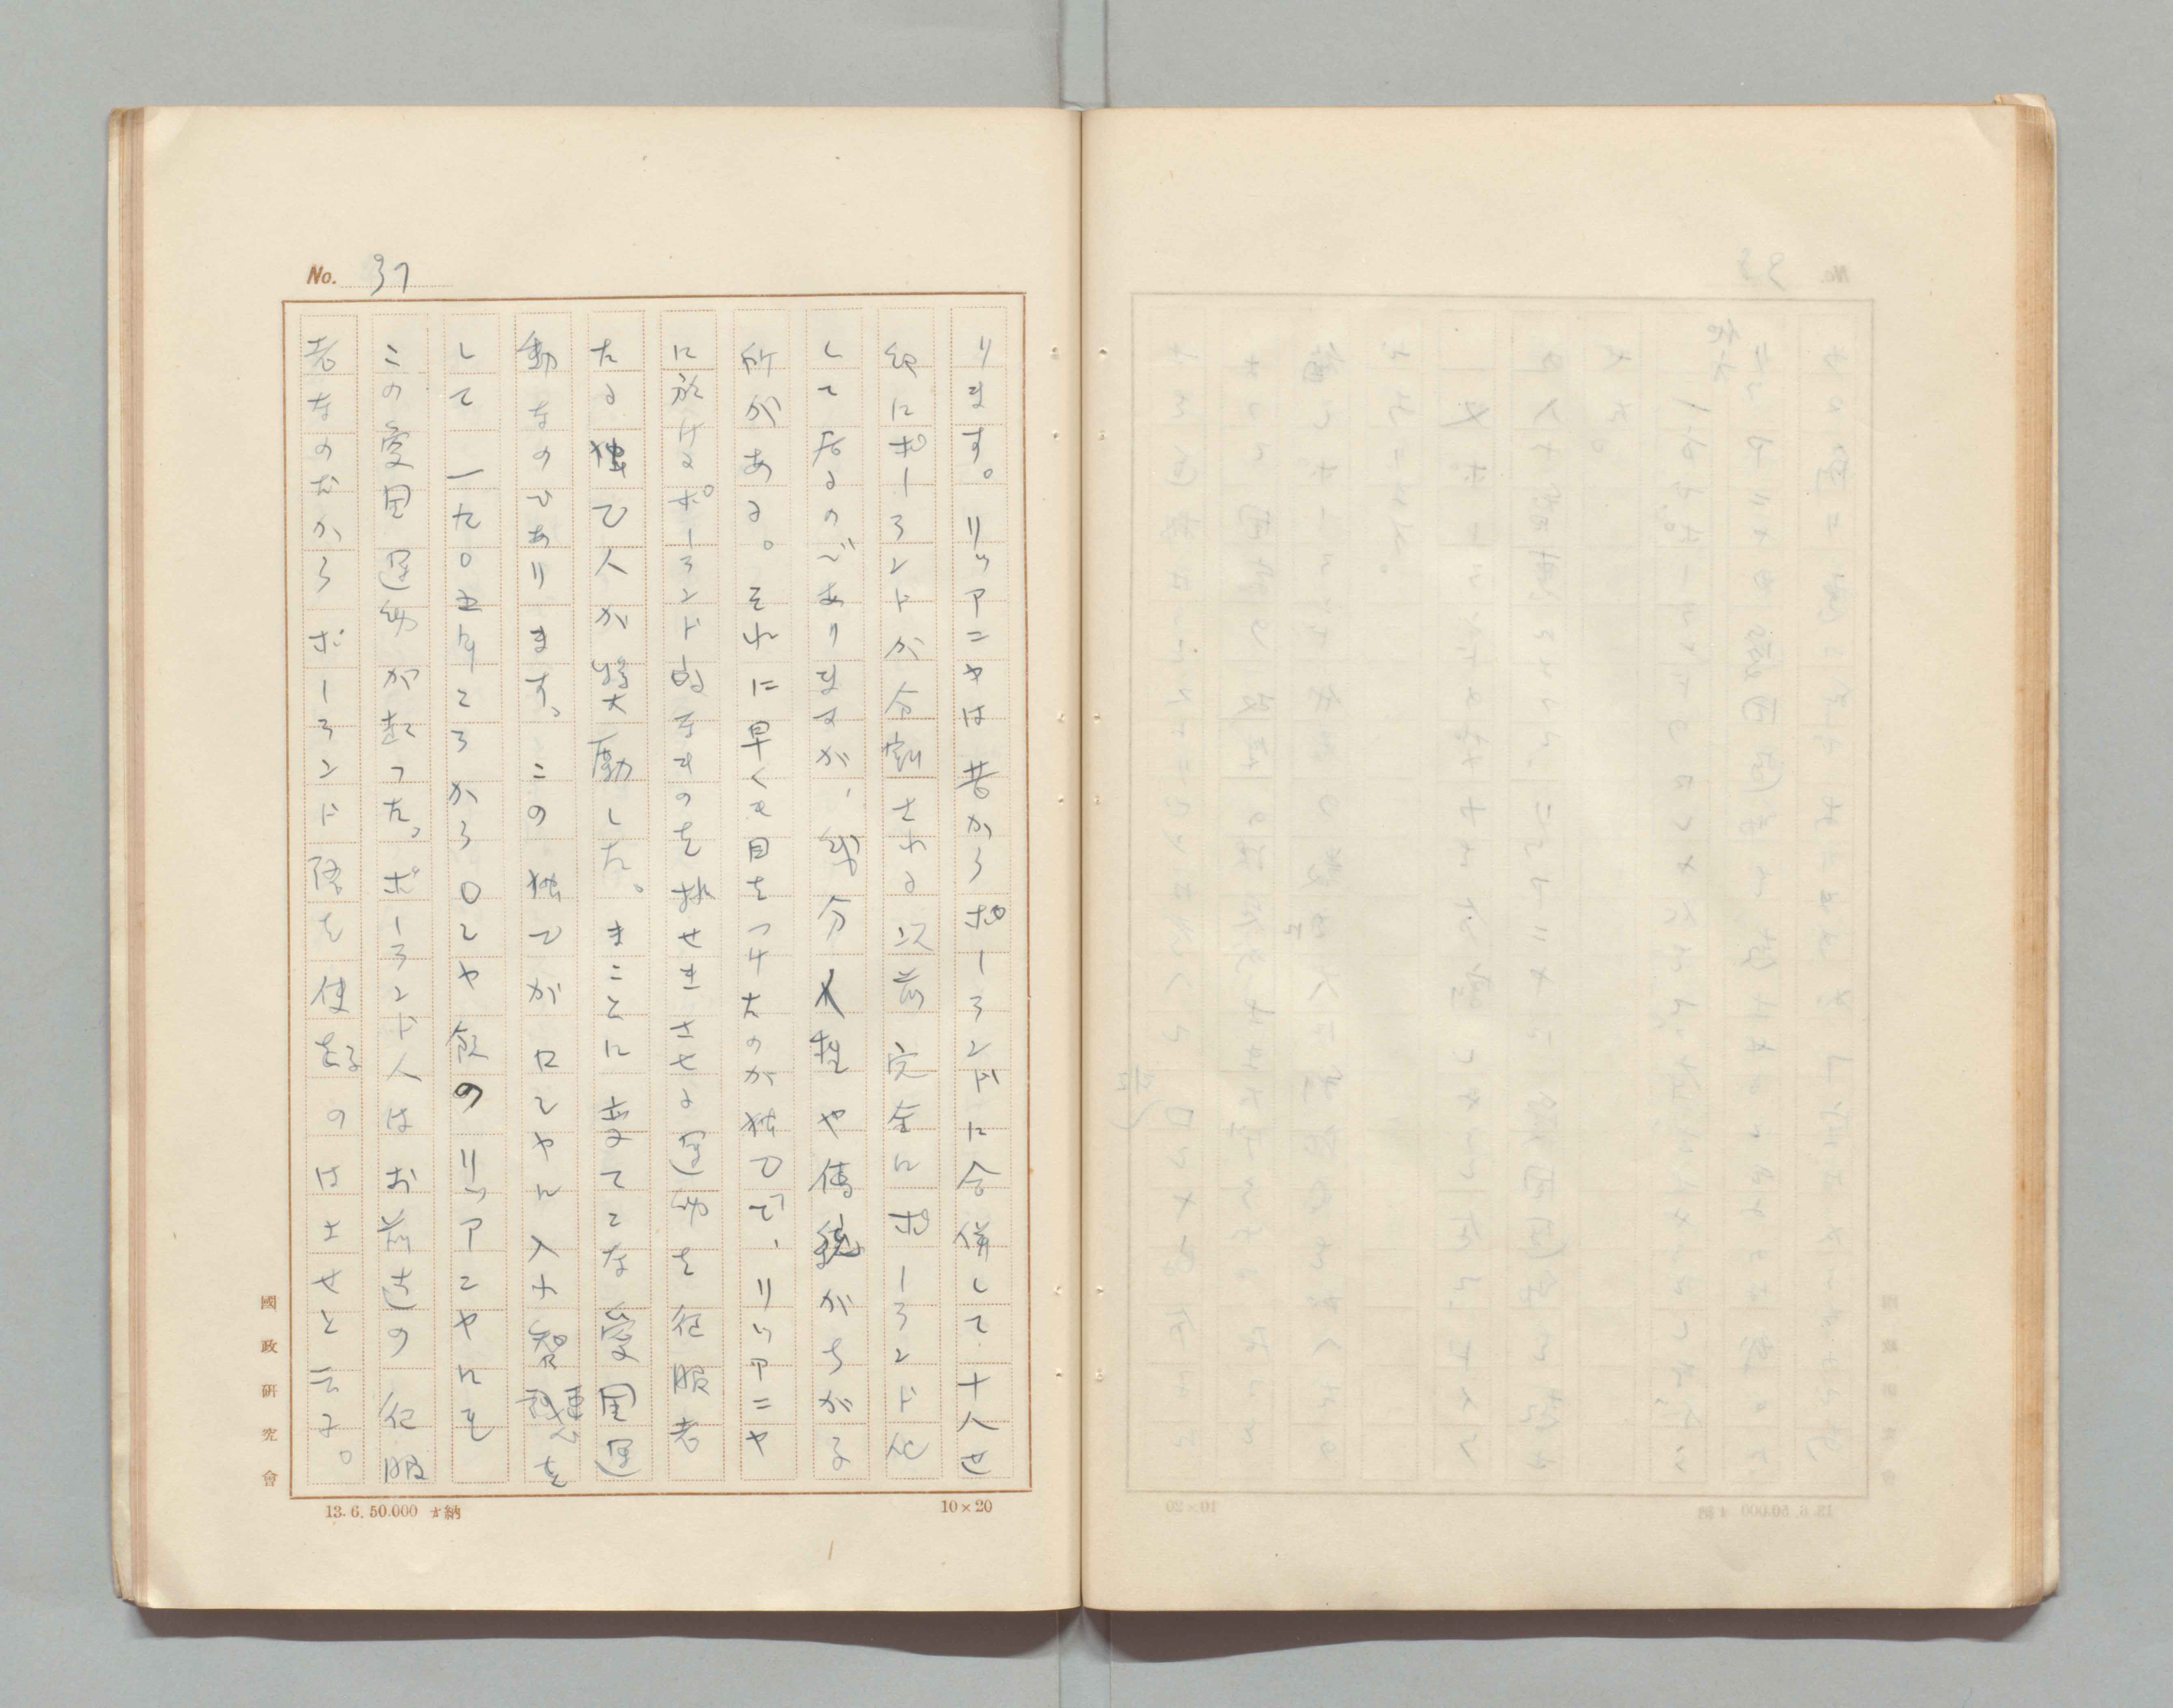 No. 37
ります。リツアニヤは昔からポーランドに合併して十八世
紀にポーランドが分割される以前完全にポーランド化
して居るのでありますが、幾分人種や傳統がちがふ
所がある。それに早くも目をつけたのが独乙で、リツアニヤ
に於けるポーランド的なものを排せきさせる運動を征服者
たる独乙人が煽動した。まことに変てこな愛国運
動なのであります。この独乙がロシヤに入智慧を
して一九〇五年ころからロシヤ領のリツアニヤにも
この愛国運動が起つた。ポーランド人はお前達の征服
者なのだからポーランド語を使ふのはよせと云ふ。
國政研究會
13. 6. 50.000 納
10×20